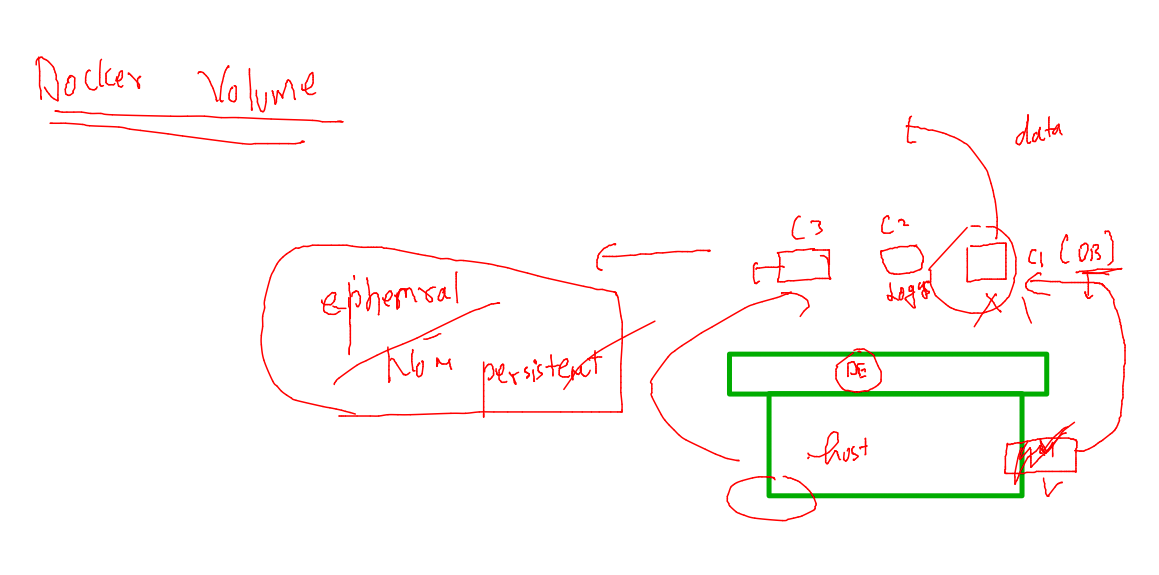 Docker Volume
data
C3
C2
C1 [DB]
Logs
ephemral
Non
persistent
DE
host
V